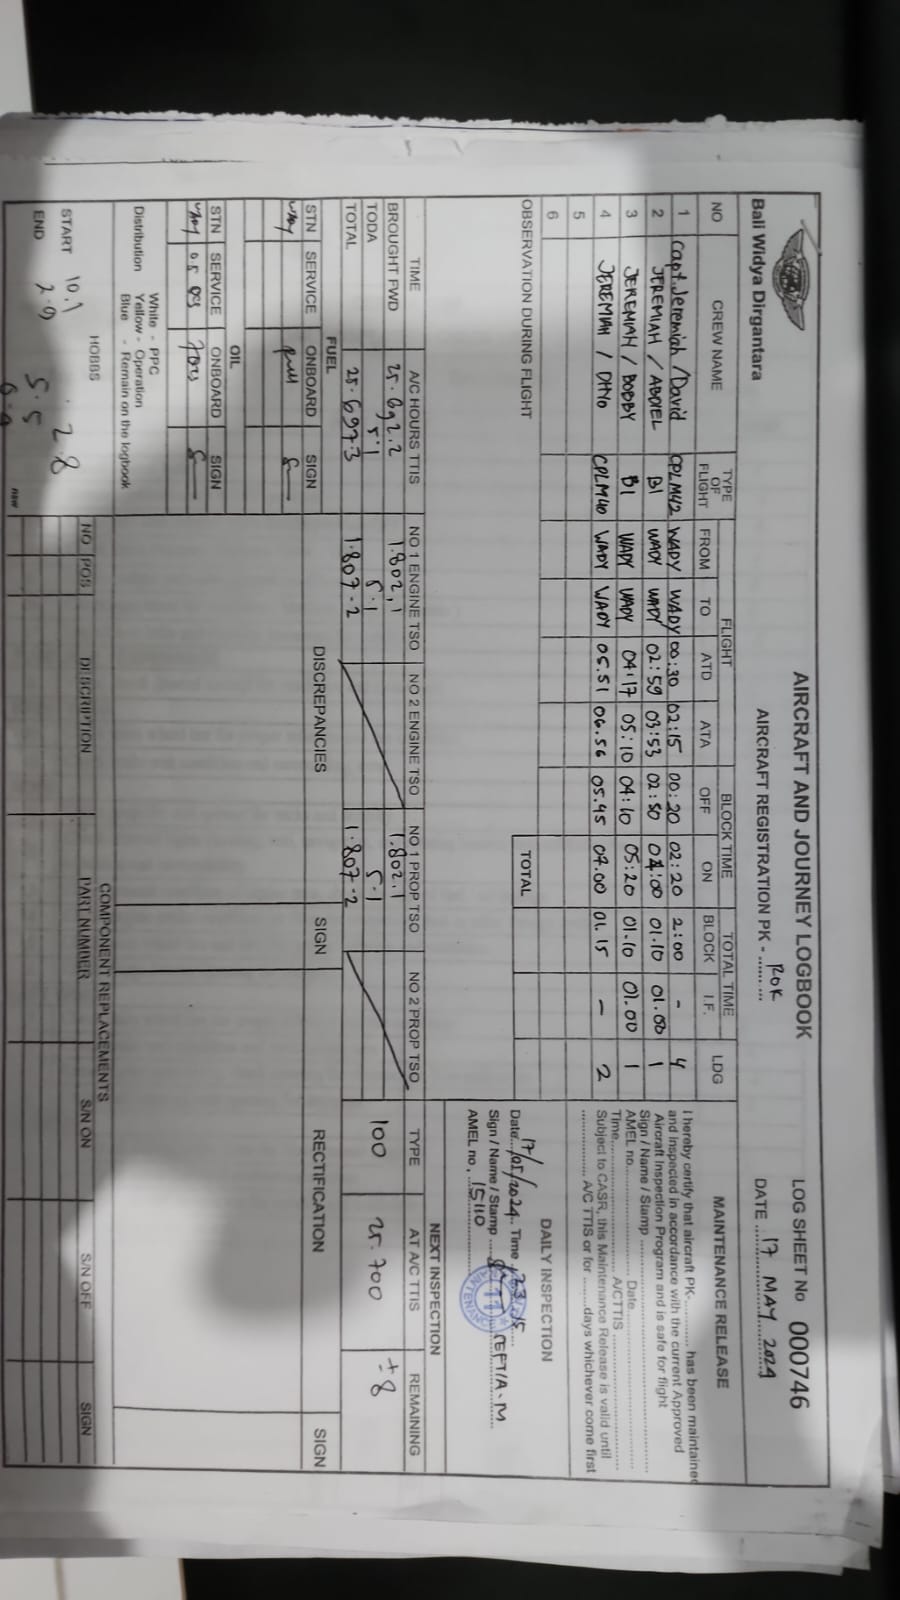 Bali Widya Dirgantara
AIRCRAFT AND JOURNEY LOGBOOK
AIRCRAFT REGISTRATION PK - ROK
LOG SHEET No 000746
DATE 17 MAY 2024
NO CREW NAME TYPE OF FLIGHT FLIGHT BLOCK TIME TOTAL TIME LDG
FROM TO ATD ATA OFF ON BLOCK I.F.
1 Capt. Jeremiah / David CPLM42 WADY WADY 00:30 02:15 00:20 02:20 2:00 - 4
2 JEREMIAH / ABDIEL B1 WADY WADY 02:59 03:53 02:50 04:00 01.10 01.00 1
3 JEREMIAH / BOBBY B1 WADY WADY 04:17 05:10 04:10 05:20 01.10 01.00 1
4 JEREMIAH / DHYO CPLM40 WADY WADY 05.51 06.56 05.45 07.00 01.15 - 2
5
6
TOTAL
OBSERVATION DURING FLIGHT
MAINTENANCE RELEASE
I hereby certify that aircraft PK-.......... has been maintained
and inspected in accordance with the current Approved
Aircraft Inspection Program and is safe for flight
Sign / Name / Stamp
AMEL no. Date
Time A/CTTIS
Subject to CASR, this Maintenance Release is valid until
A/C TTIS or for days whichever come first
DAILY INSPECTION
Date 17/05/2024 Time
Sign / Name / Stamp
AMEL no, 15110
TIME A/C HOURS TTIS NO 1 ENGINE TSO NO 2 ENGINE TSO NO 1 PROP TSO NO 2 PROP TSO
BROUGHT FWD 25.692.2 1.802,1 1.802.1
TODA 5.1 5.1 5.1
TOTAL 25.697.3 1.807-2 1.807-2
NEXT INSPECTION
TYPE AT A/C TTIS REMAINING
100 25.700 ± 8
FUEL
STN SERVICE ONBOARD SIGN
WADY Full
OIL
STN SERVICE ONBOARD SIGN
WADY 0.5 QTS 7QTS
DISCREPANCIES SIGN RECTIFICATION SIGN
Distribution White - PPC
Yellow - Operation
Blue - Remain on the logbook
HOBBS
START 10.1 2.8
END 2.9 5.5
COMPONENT REPLACEMENTS
NO POS DESCRIPTION PART NUMBER S/N ON S/N OFF SIGN